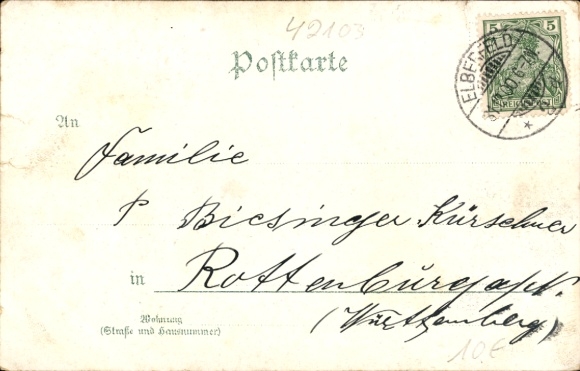 42103
Postkarte
5 5
REICHSPOST
ELBERFELD
An
Familie
P Biesinger Kürschner
in Rottenburg a/N.
(Württemberg)
Wohnung
(Straße und Hausnummer)
10€